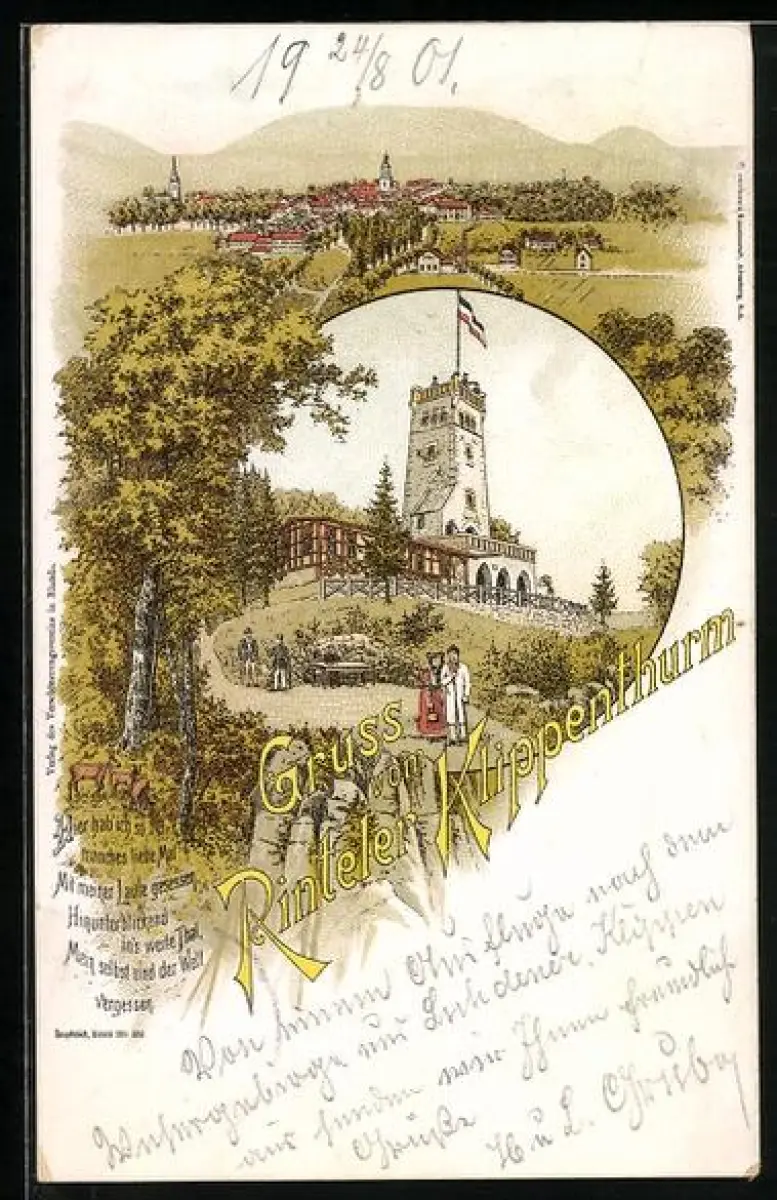 19 24/8 01.
Verlag des Verschönerungsvereins in Rinteln.
Gruss
vom
Rinteler Klippenthurm
Hier hab ich so
manches liebe Mal
Mit meiner Laute gesessen,
Hinunterblickend
in's weite Thal,
Mein selbst und der Welt
vergessen.
Von einem Ausfluge nach dem
Wesergebirge und Luhdener Klippen
aus senden wir Ihnen freundlich
Grüße H u L.